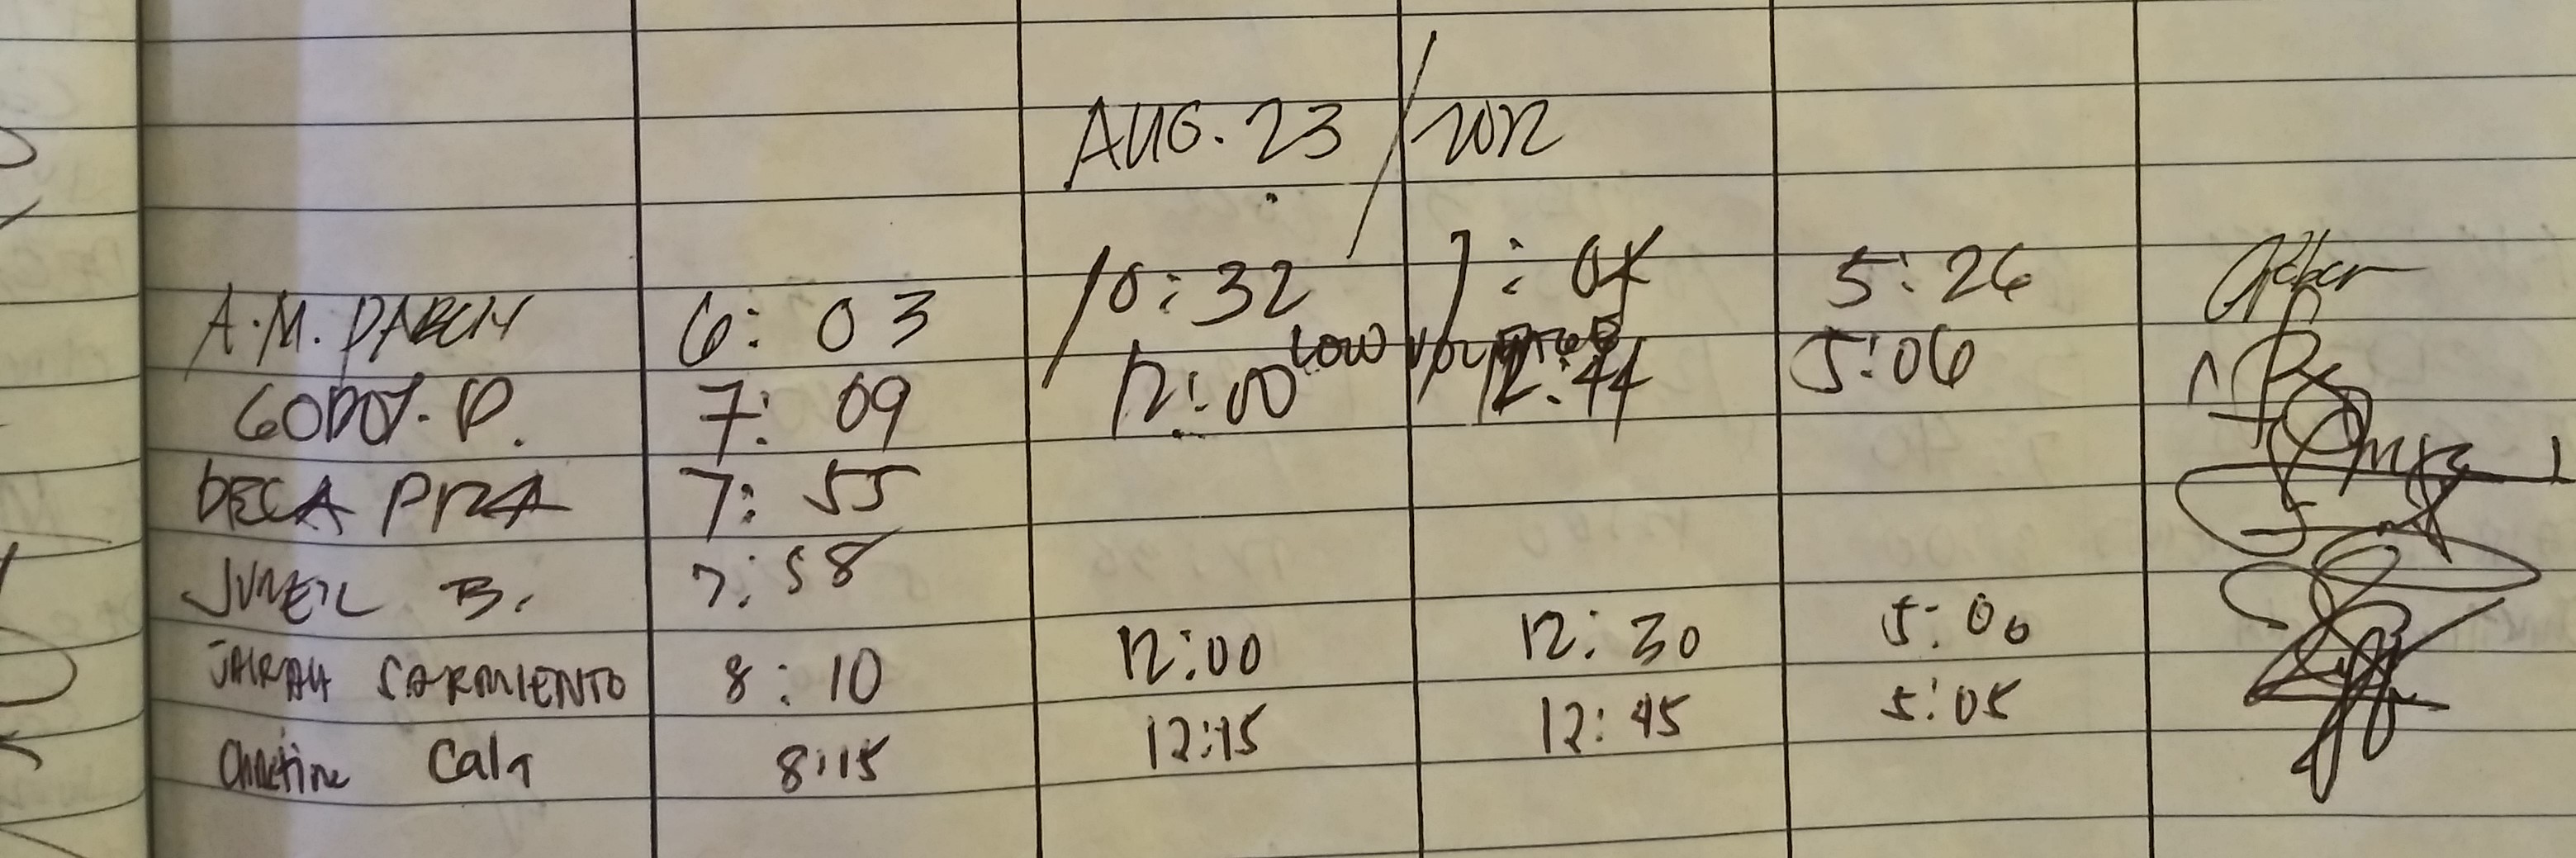 AUG. 23 / 2022
A.M. 6:03 10:32 1:04 5:26
LOW VOLTAGE
GODOY. D. 7:09 12:00 12:44 5:06
DECA PIZA 7:55
JUNEIL B. 7:58
JAIRAH SARMIENTO 8:10 12:00 12:30 5:00
Christine Cala 8:15 12:15 12:45 5:05